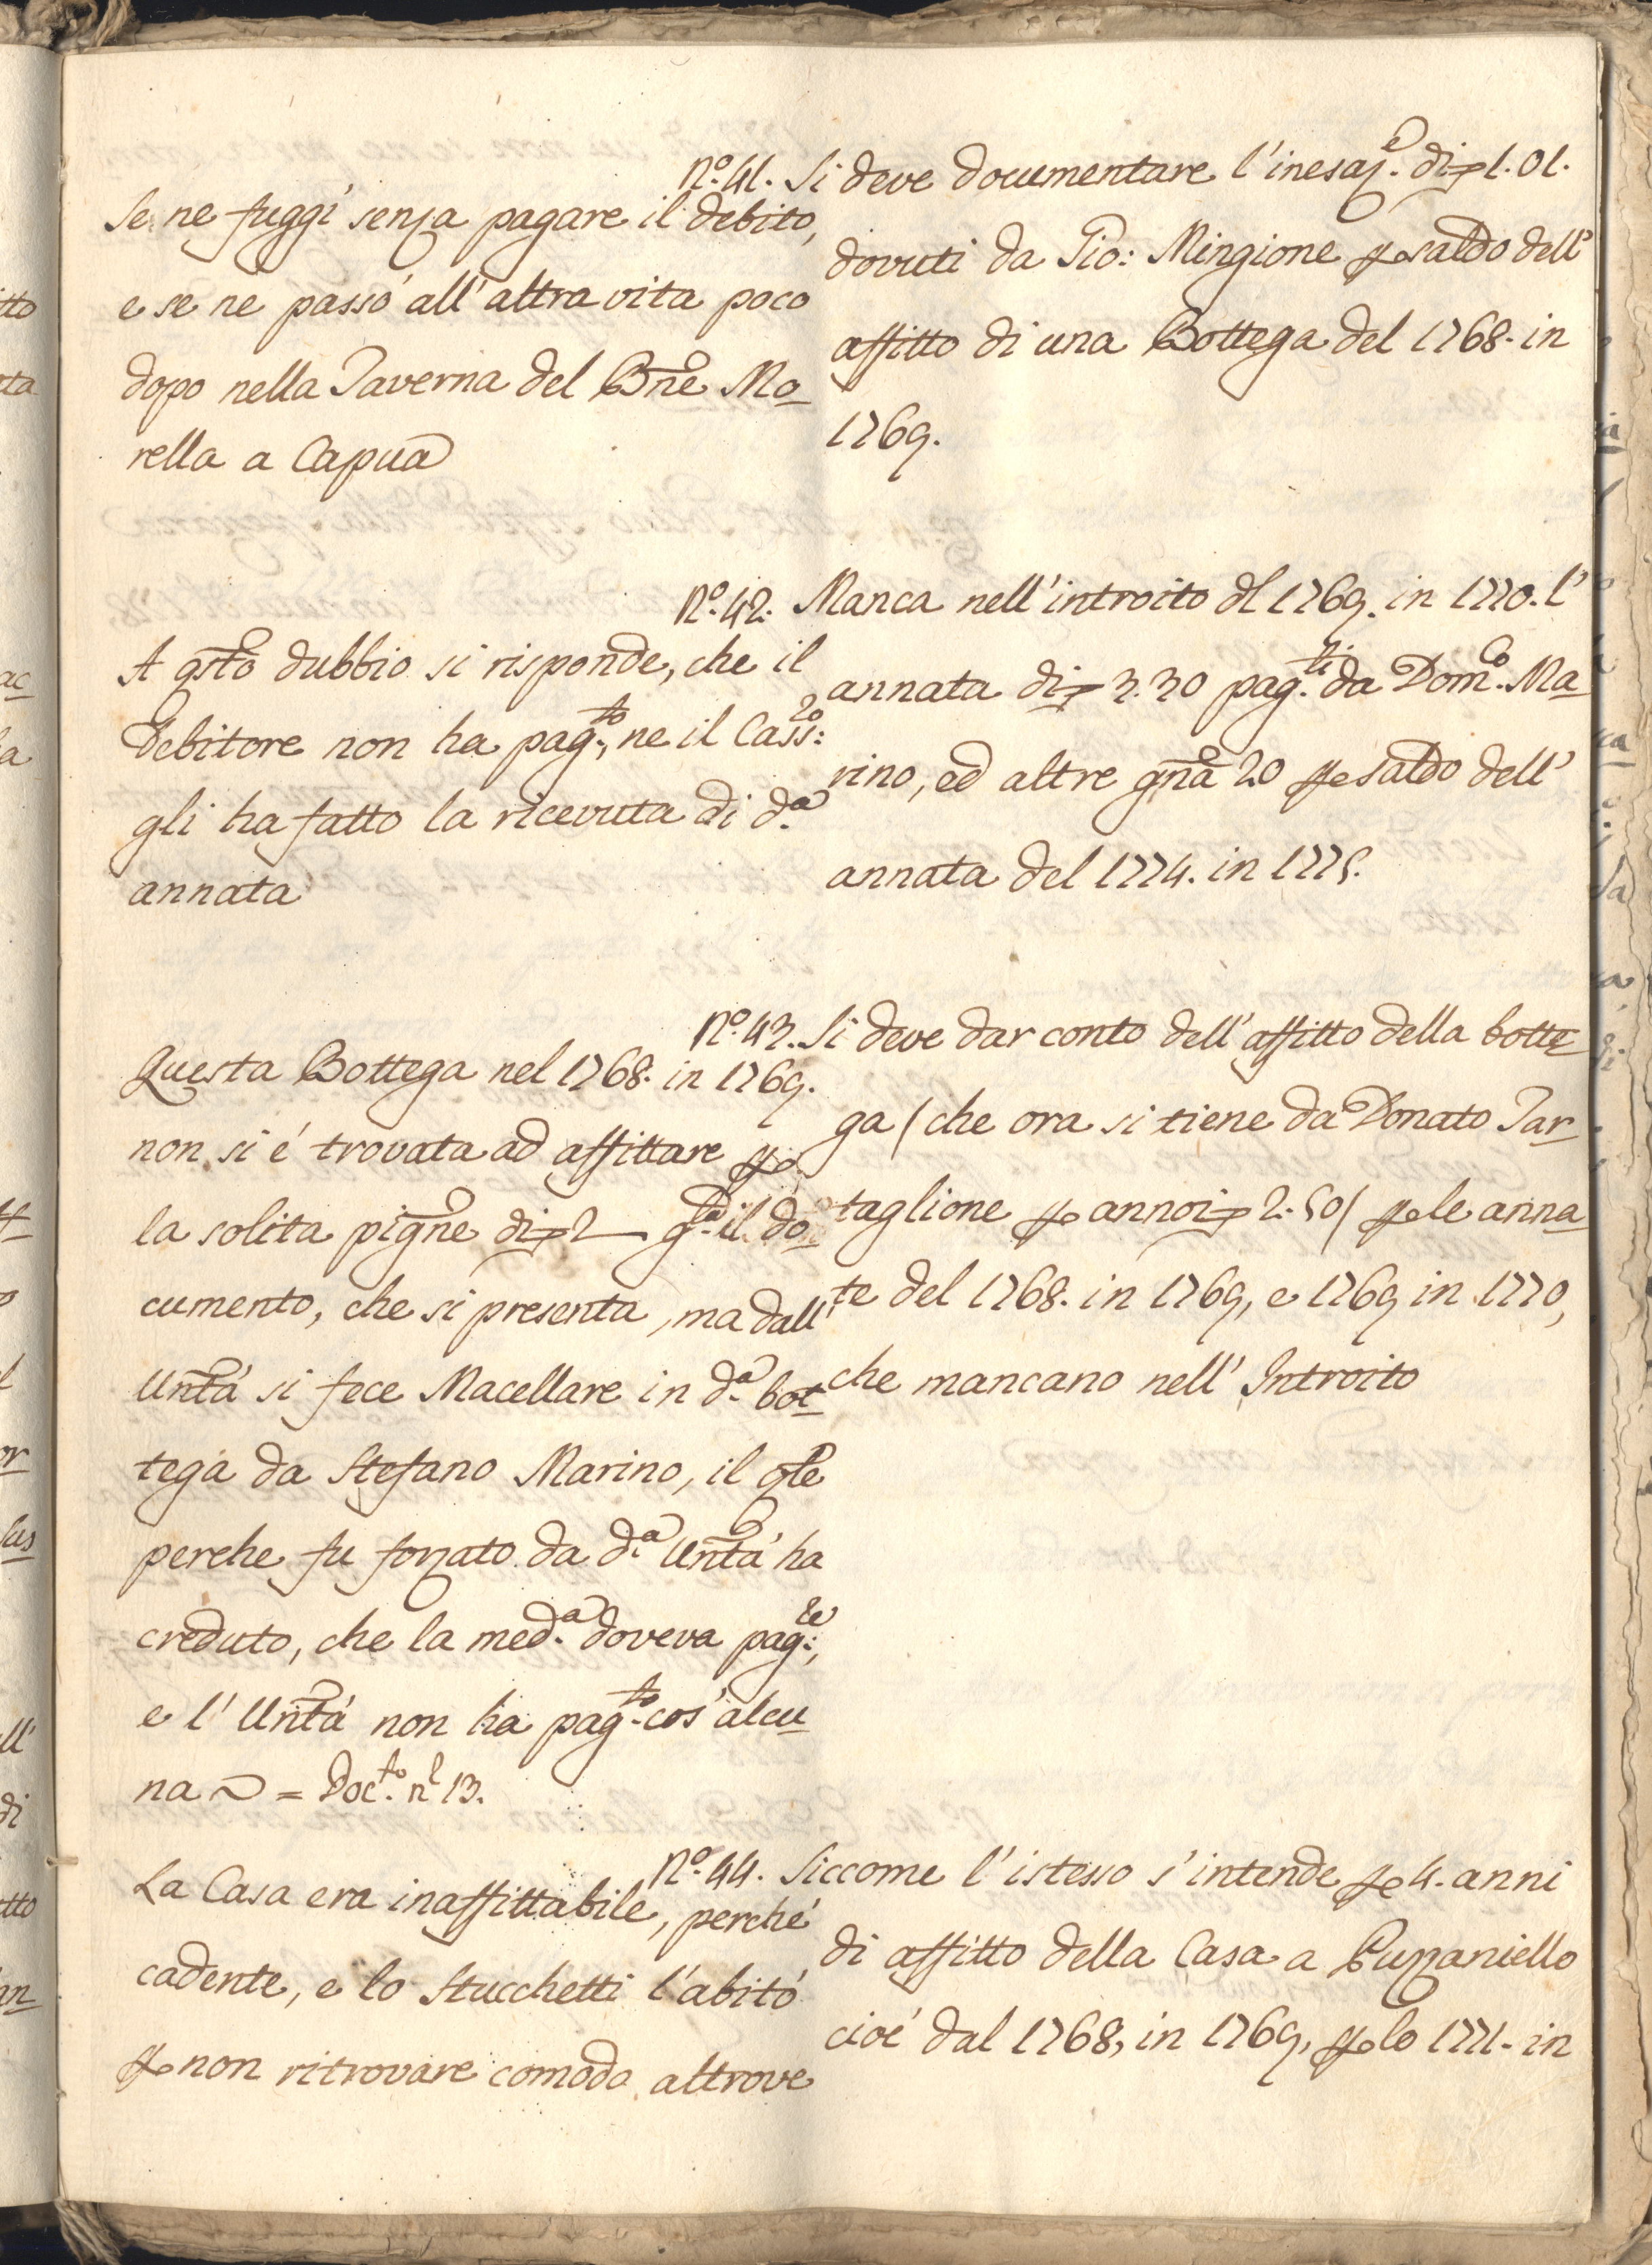 Nº. 41. Si deve documentare l'inesaz.e di 1.01.
dovuti da Gio: Mingione per saldo dell'
affitto di una Bottega del 1768. in
1769.
Se ne fuggì senza pagare il debito,
e se ne passò all'altra vita poco
dopo nella Taverna del Bne Mo
rella a Capua
Nº. 42. Manca nell'introito dl 1769. in 1770. l'
annata di 3.30 pag.ti da Dom.co Ma
rino, ed altre gna 20 per saldo dell'
annata del 1774. in 1775.
A qsto dubbio si risponde, che il
Debitore non ha pag.to, ne il Cass:
gli ha fatto la ricevuta di d.a
annata
Nº. 43. Si deve dar conto dell'affitto della botte
ga (che ora si tiene da Donato Tar
taglione per annoi 2.50) per le anna
te del 1768. in 1769, e 1769 in 1770,
che mancano nell'Introito
Questa Bottega nel 1768. in 1769.
non si è trovata ad affittare per
la solita pigne di 2 — g.ta il do
cumento, che si presenta, ma dall'
Untà si fece Macellare in d.a bot
tega da Stefano Marino, il qle
perche fu forzato da d.a Untà ha
creduto, che la med.a doveva pag.re,
e l'Untà non ha pag.to cos'alcu
na = Doc.to nº 13.
Nº. 44. Siccome l'istesso s'intende per 4. anni
di affitto della Casa a Puzzaniello
cioè dal 1768, in 1769, per lo 1771. in
La Casa era inaffittabile, perché
cadente, e lo Stucchetti l'abitò
per non ritrovare comodo altrove